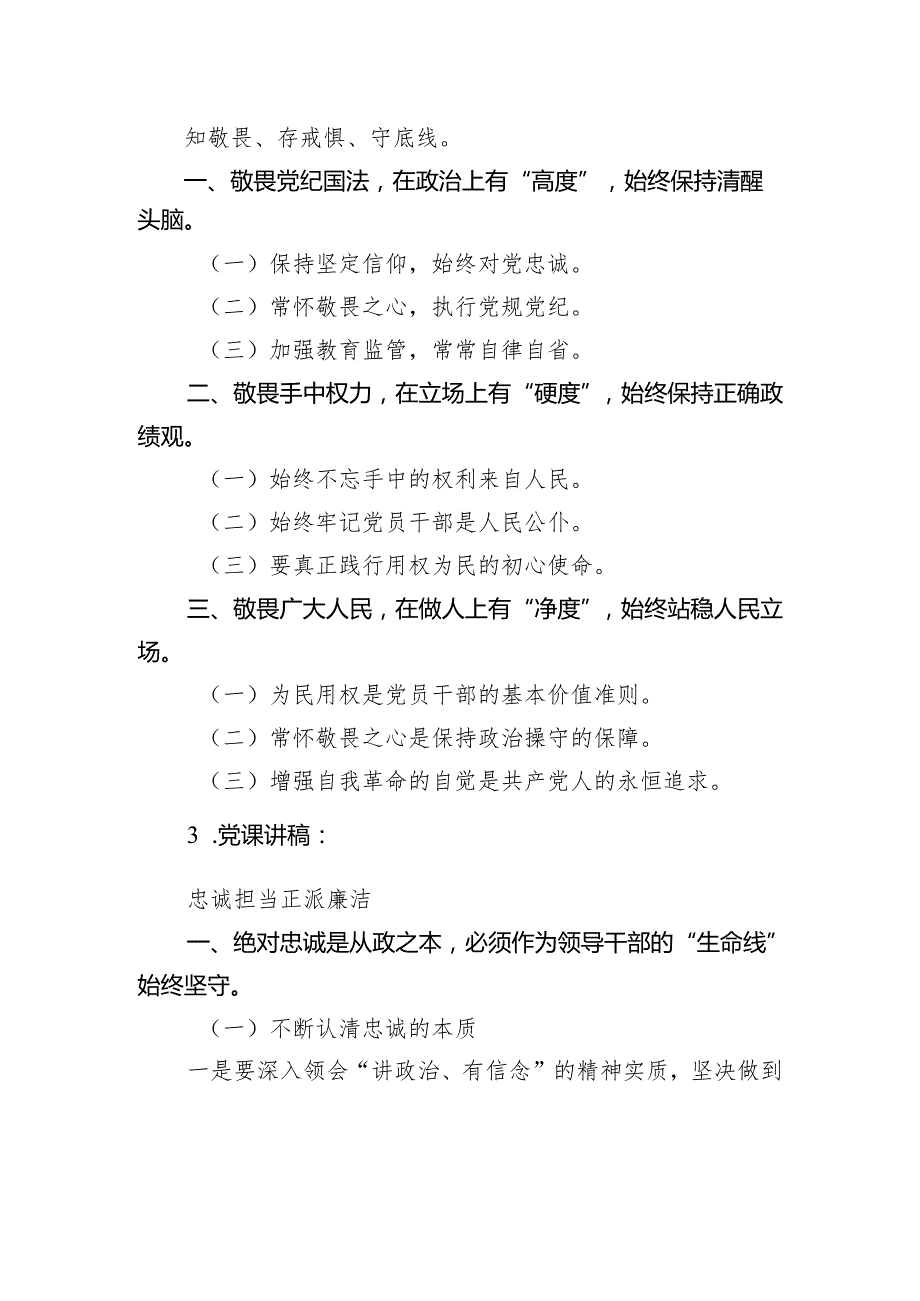 知敬畏、存戒惧、守底线。
一、敬畏党纪国法，在政治上有“高度”，始终保持清醒
头脑。
（一）保持坚定信仰，始终对党忠诚。
（二）常怀敬畏之心，执行党规党纪。
（三）加强教育监管，常常自律自省。
二、敬畏手中权力，在立场上有“硬度”，始终保持正确政
绩观。
（一）始终不忘手中的权利来自人民。
（二）始终牢记党员干部是人民公仆。
（三）要真正践行用权为民的初心使命。
三、敬畏广大人民，在做人上有“净度”，始终站稳人民立
场。
（一）为民用权是党员干部的基本价值准则。
（二）常怀敬畏之心是保持政治操守的保障。
（三）增强自我革命的自觉是共产党人的永恒追求。
3 .党课讲稿：
忠诚担当正派廉洁
一、绝对忠诚是从政之本，必须作为领导干部的“生命线”
始终坚守。
（一）不断认清忠诚的本质
一是要深入领会“讲政治、有信念”的精神实质，坚决做到